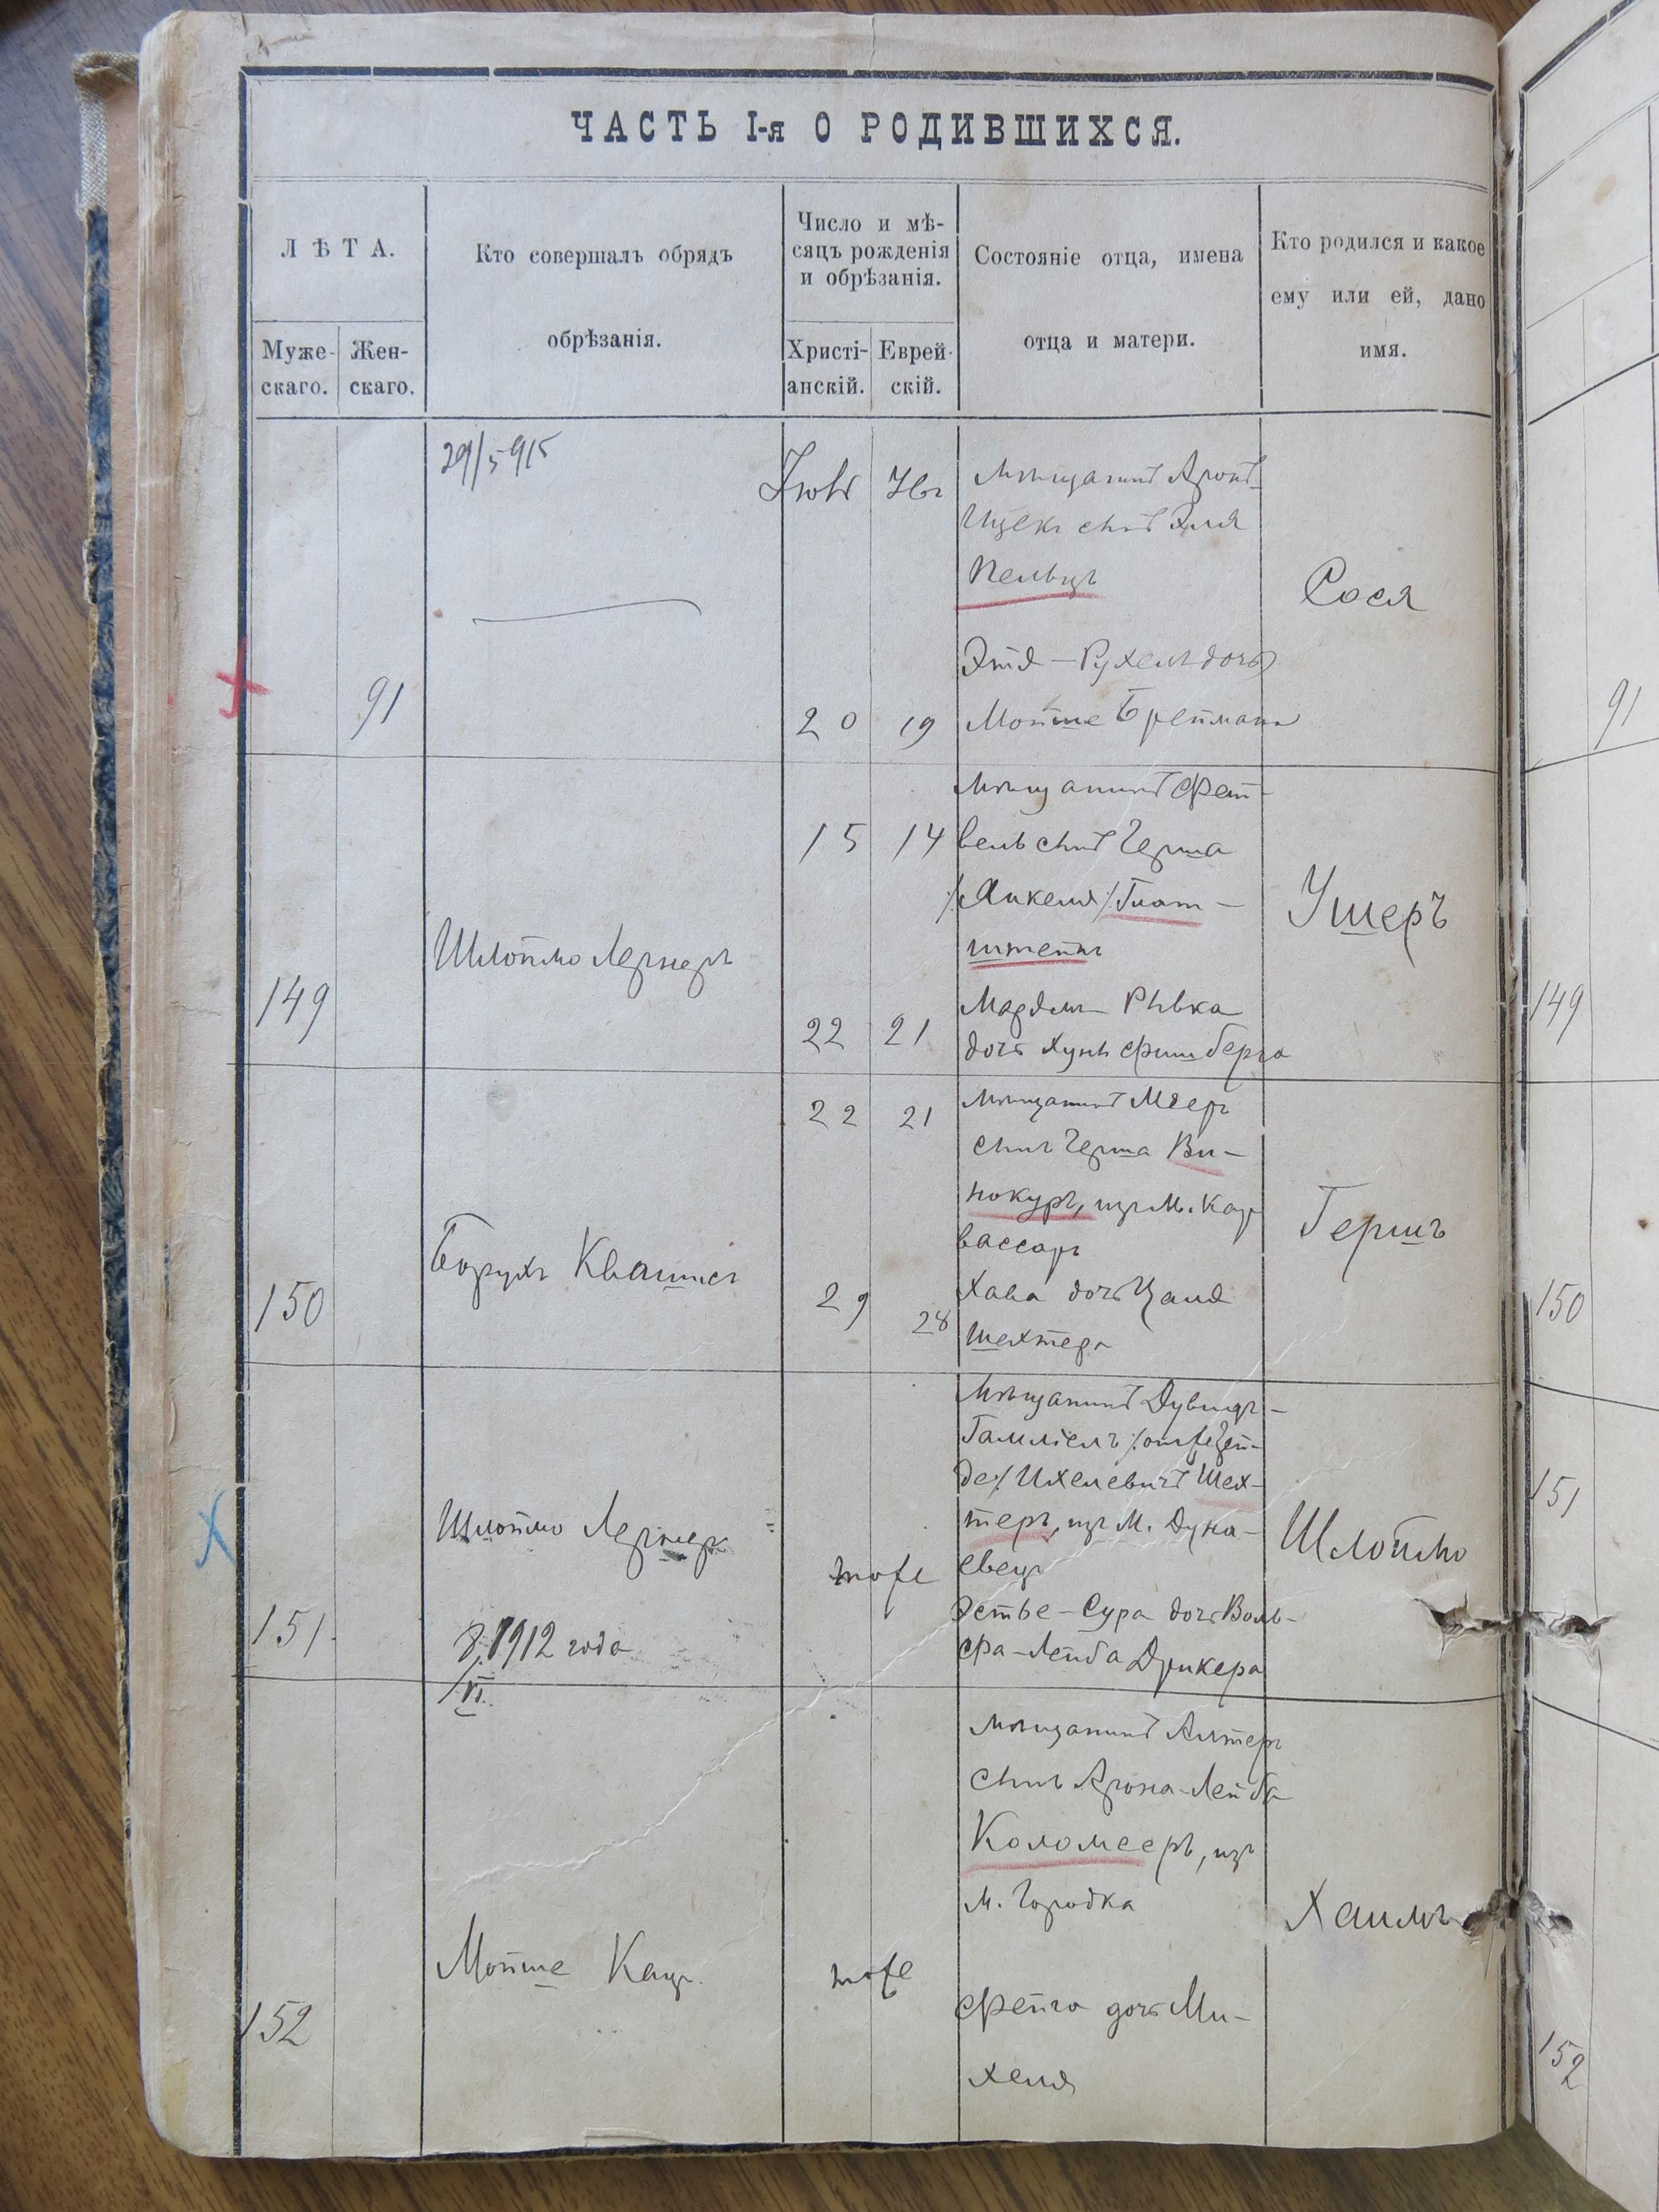 ЧАСТЬ I-я О РОДИВШИХСЯ.
ЛѢТА.
Муже-
скаго.
Жен-
скаго.
Кто совершалъ обрядъ
обрѣзанія.
Число и мѣ-
сяцъ рожденія
и обрѣзанія.
Христі-
анскій.
Еврей-
скій.
Состояніе отца, имена
отца и матери.
Кто родился и какое
ему или ей, дано
имя.
91
29/5 915
20
19
Мѣщанинъ Аронъ-
Ицекъ сынъ Эля
Пельцъ
Этя-Рухель дочь
Мойше Бреймана
Сося
149
Шлоймо Лернеръ
15 14
22 21
Мѣщанинъ Фай-
вель сынъ Герша
/:Янкеля:/ Глат-
штейнъ
Рывка
дочь
Ушеръ
150
Борухъ Квашисъ
22 21
29 28
Мѣщанинъ Мееръ
сынъ Герша Ви-
нокуръ, изъ м. Кар
вассаръ
Хава дочь Цаля
Шехтера
Гершъ
151
Шлоймо Лернеръ
8/VI 1912 года
тоже
Мѣщанинъ Дувидъ-
Гамліелъ
де:/ Ихелевичъ Шех-
теръ, изъ м. Дуна-
евецъ
Эстье-Сура дочь Воль-
фа-Лейба Друкера
Шлоймо
152
Мойше Кацъ.
тоже
Мѣщанинъ Алтеръ
сынъ Арона-Лейба
Коломееръ, изъ
м. Городка
Фейга дочь Ми-
хеля
Хаимъ
91
149
150
151
152